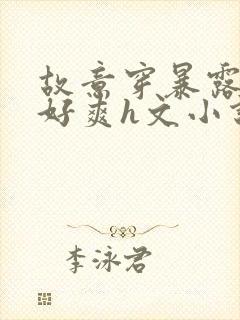 故意穿暴露
好爽h文小
李泳君